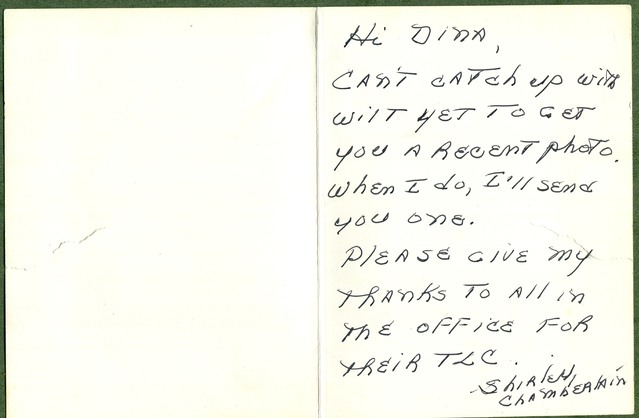 Hi Dina,
Can't catch up with
Wilt yet to get
you a recent photo.
When I do, I'll send
you one.
Please give my
thanks to all in
the office for
their TLC.
Shirley
Chamberlain